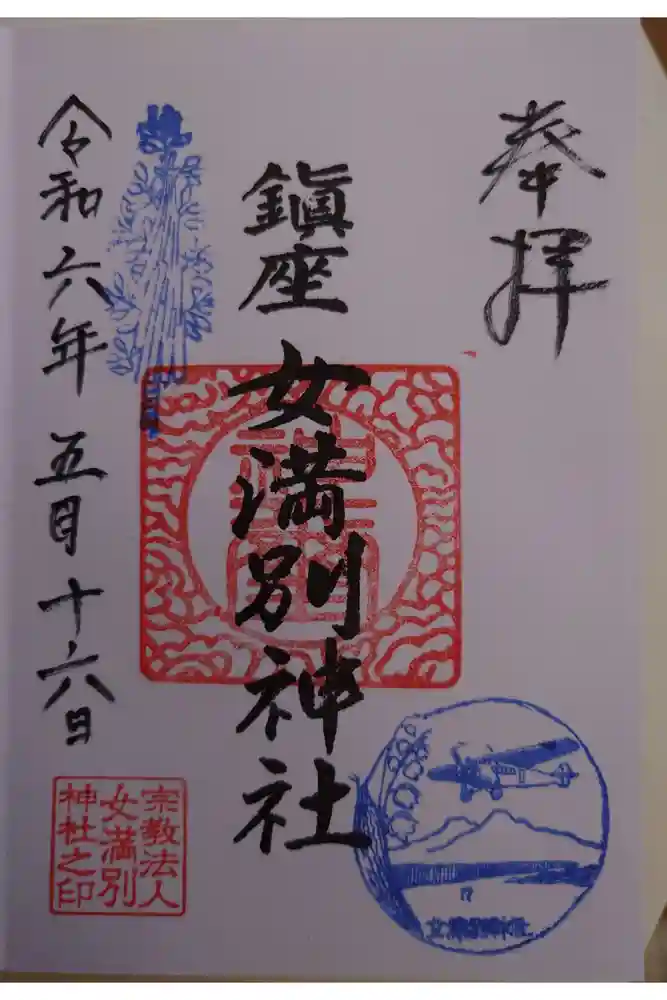 奉拝
鎭座
女満別神社
令和六年五月十六日
宗教法人
女満別
神社之印
女満別神社